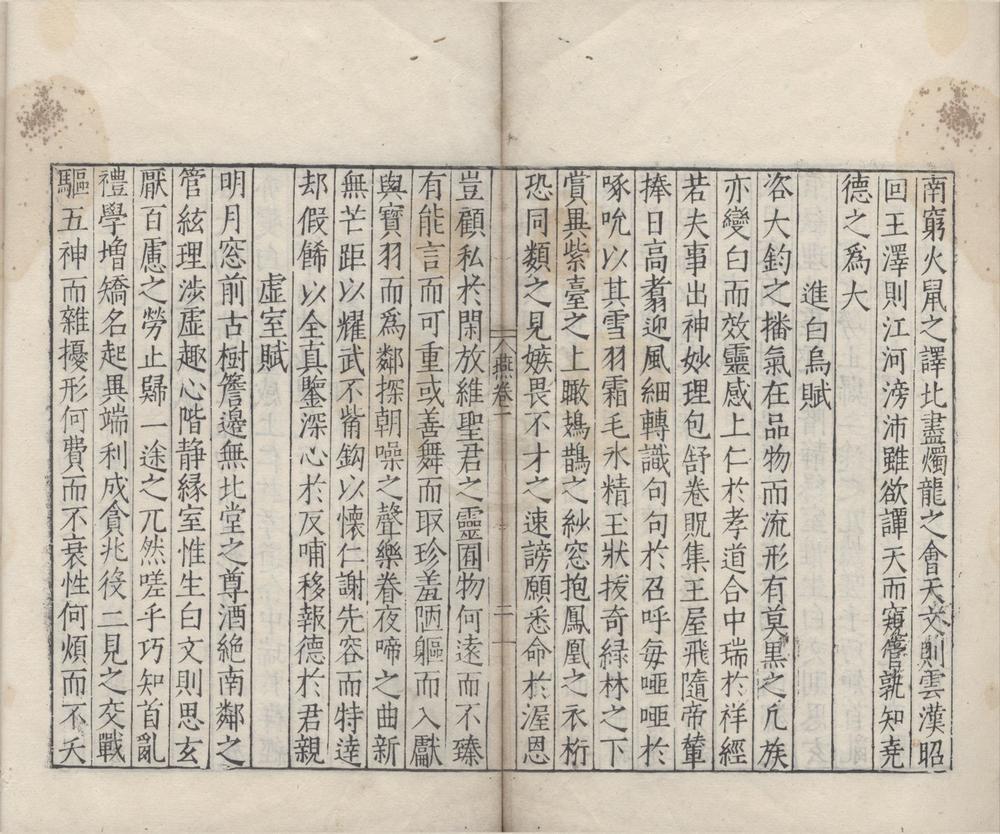 南窮火鼠之譯北盡燭龍之會天文則雲漢昭
回王澤則江河滂沛雖欲譚天而窺管孰知堯
德之爲大
進白烏賦
咨大鈞之播氣在品物而流形有莫黒之凢族
亦變白而效靈感上仁於孝道合中瑞於祥經
若夫事出神妙理包舒卷貺集王屋飛隨帝輦
捧日高翥迎風細轉識句句於召呼毎啞啞於
啄吮以其雪羽霜毛氷精玉狀拔奇緑林之下
賞異紫臺之上瞰鳷鵲之紗窓抱鳳凰之衣桁
恐同類之見嫉畏不才之速謗願悉命於渥恩
燕卷二
二
豈顧私於閑放維聖君之靈囿物何遠而不臻
有能言而可重或善舞而取珍羞陋軀而入獻
與寶羽而爲鄰探朝噪之聲樂眷夜啼之曲新
無芒距以耀武不觜鈎以懷仁謝先容而特達
却假餙以全真鑒深心於反哺移報德於君親
虚室賦
明月窓前古樹簷邊無北堂之尊酒絶南鄰之
管絃理渉虚趣心階静縁室惟生白文則思玄
厭百慮之勞止歸一途之兀然嗟乎巧知首亂
禮學増矯名起異端利成貪兆役二見之交戰
驅五神而雜擾形何費而不衰性何煩而不夭